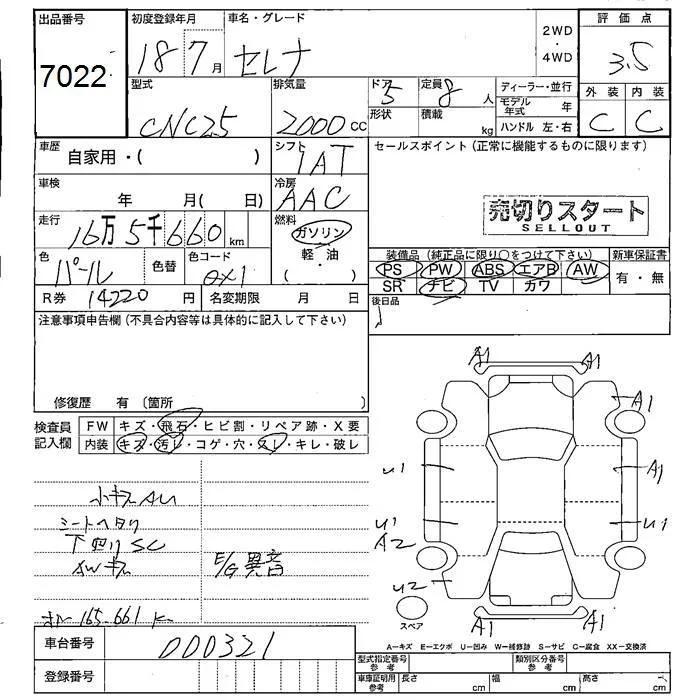 出品番号
7022
初度登録年月
18 7月
車名・グレード
セレナ
2WD
・
4WD
評価点
3.5
外装 内装
C C
型式
CNC25
排気量
2000cc
ドア 5
形状
定員 8人
積載 kg
ディーラー・並行
モデル年式 年
ハンドル 左・右
車歴
自家用・( )
シフト
IAT
セールスポイント(正常に機能するものに限ります)
車検
年 月( 日)
冷房
AAC
売切りスタート
SELLOUT
走行
16万5千660km
燃料
ガソリン
軽・油
( )
色
パール
色替
色コード
装備品(純正品に限り○をつけて下さい)
PS PW ABS エアB AW
SR ナビ TV カワ
新車保証書
有・無
R券 14220円
名変期限 月 日
後日品
注意事項申告欄(不具合内容等は具体的に記入して下さい)
修復歴 有 〔箇所 〕
検査員記入欄
FW キズ・飛石・ヒビ割・リペア跡・X要
内装 キズ・汚レ・コゲ・穴・スレ・キレ・破レ
小キズAU
シートヘタリ
下回りSC
AWキズ
E/G異音
165.661K
A1 A1
A1
U1
A1
U1
A2
U1
U2
スペア
A1 A1
A－キズ E－エクボ U－凹み W－補修跡 S－サビ C－腐食 XX－交換済
車台番号
000321
登録番号
型式指定番号参考
類別区分番号参考
車庫証明用参考
長さ cm
幅 cm
高さ cm